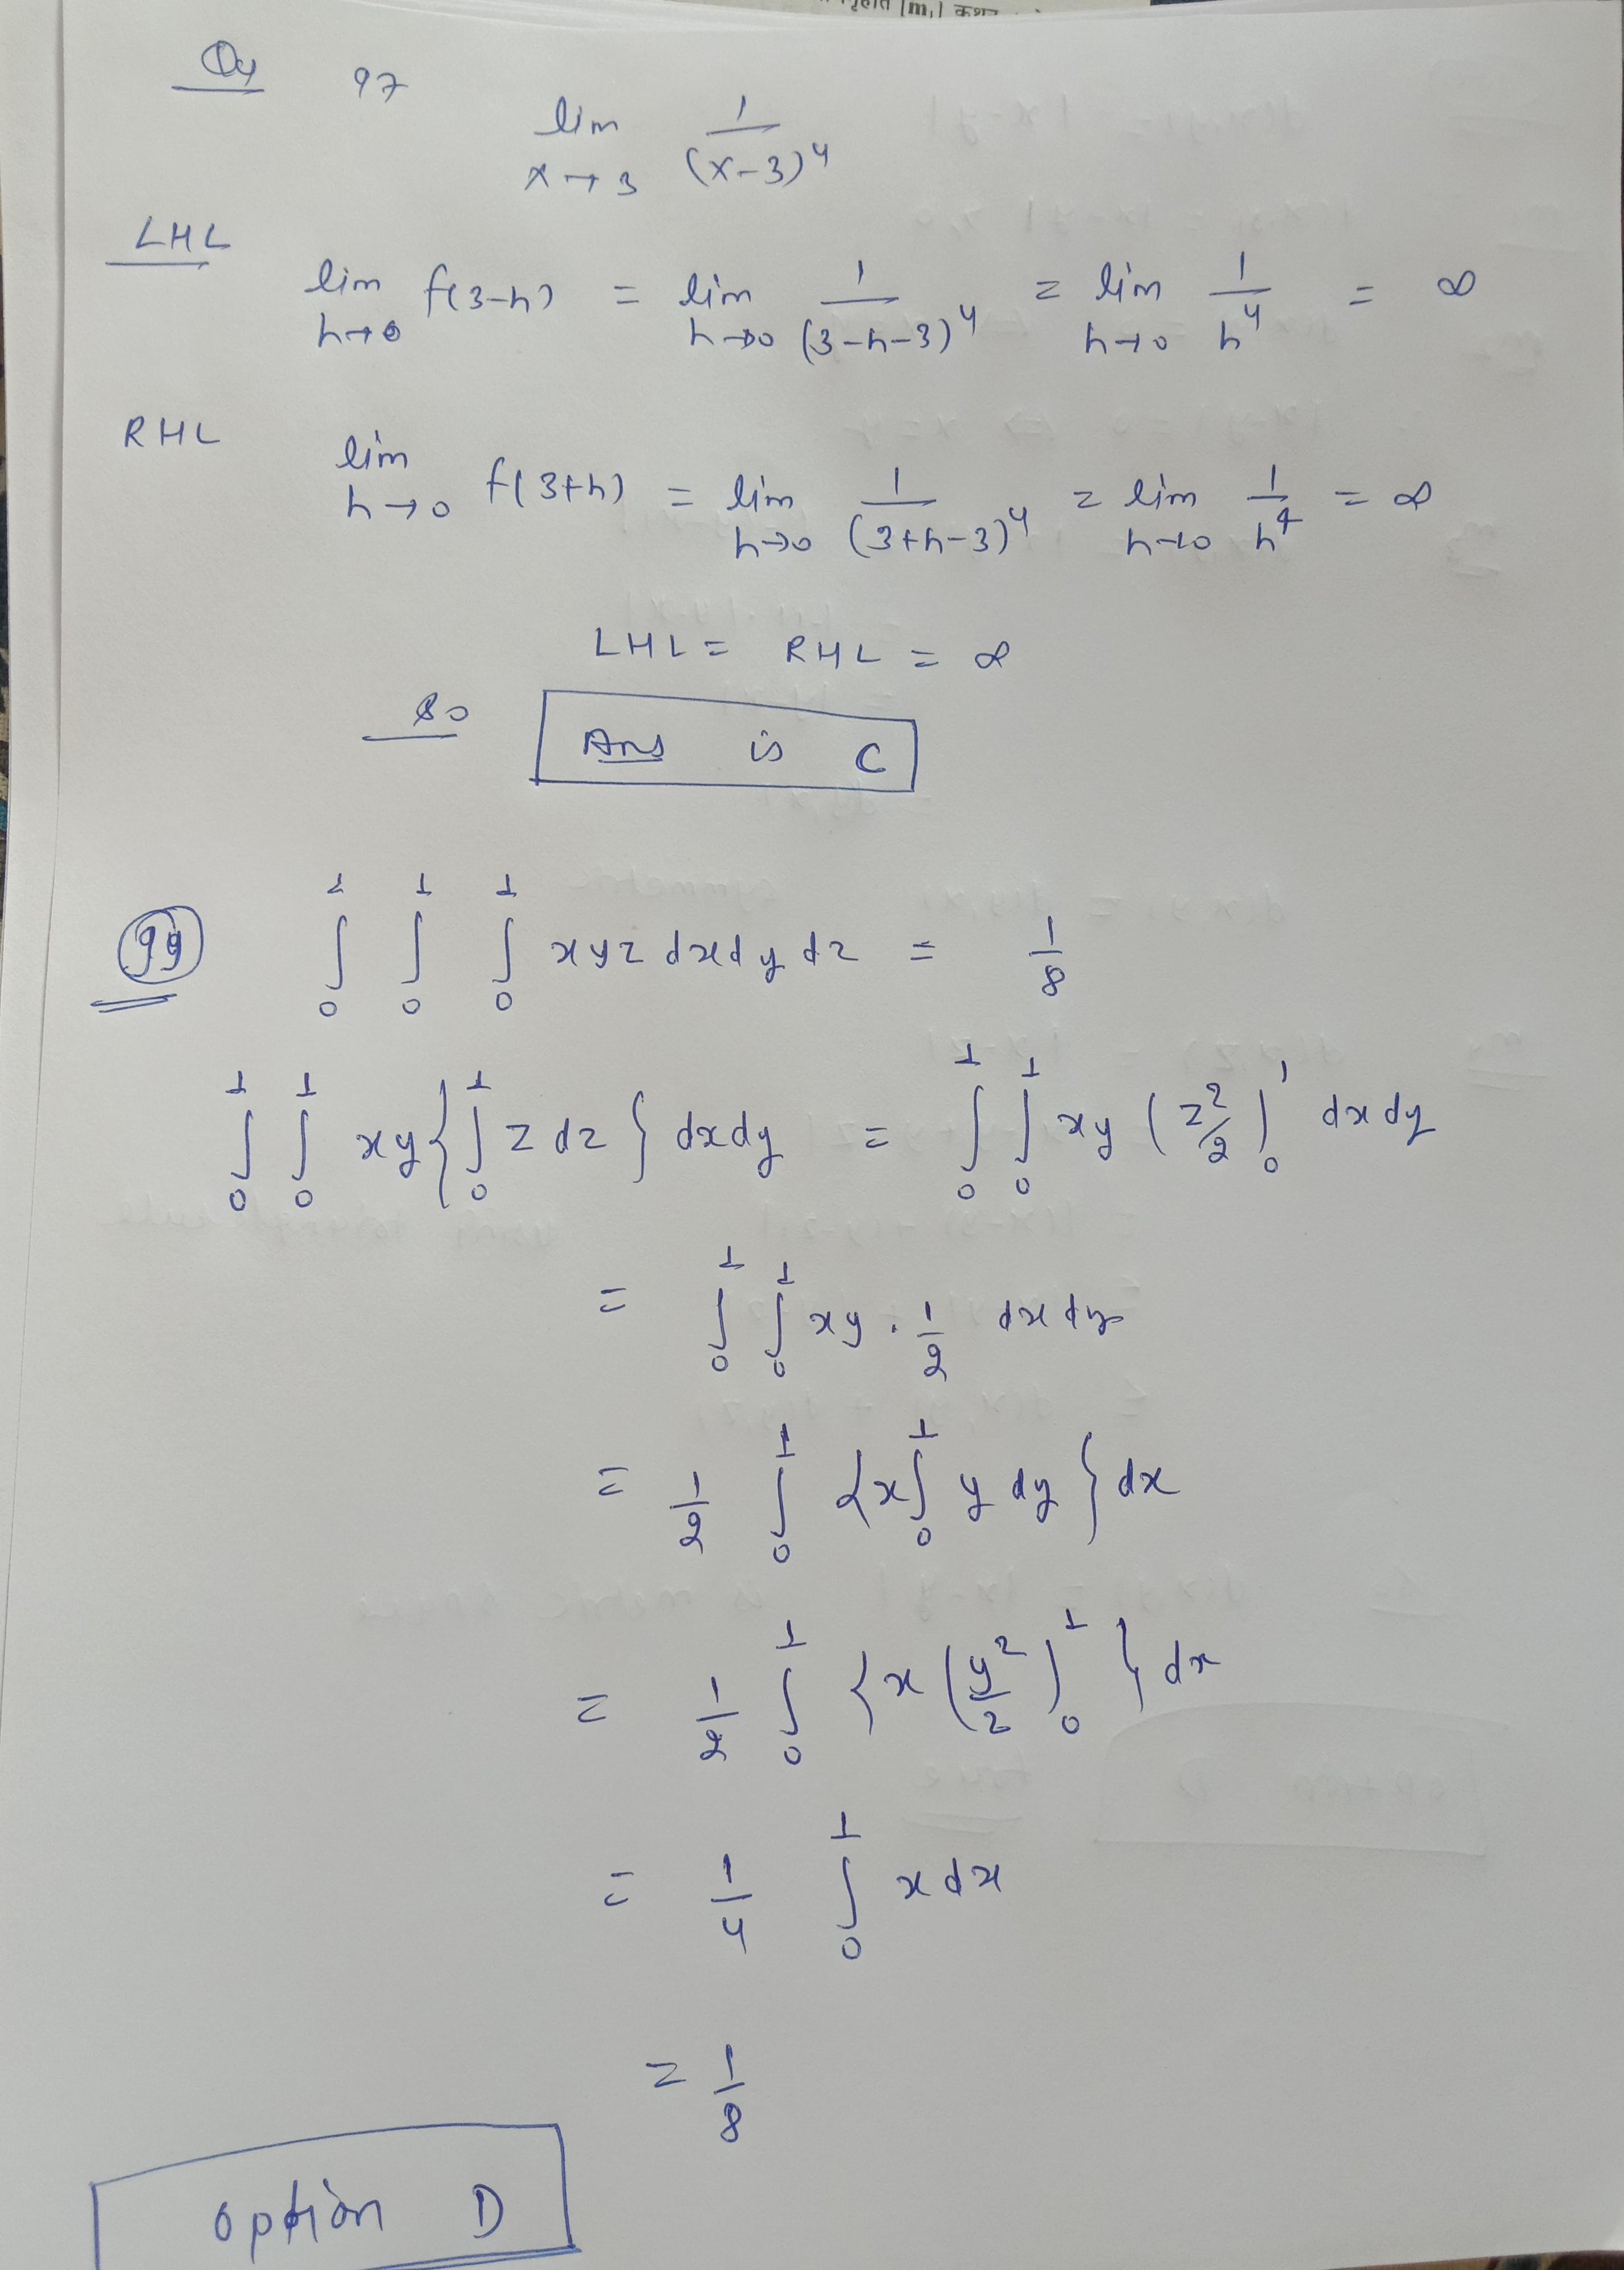 [m,]
Qy 97
lim x→3 1/(x-3)^4
LHL
lim h→0 f(3-h) = lim h→0 1/(3-h-3)^4 = lim h→0 1/h^4 = ∞
RHL lim h→0 f(3+h) = lim h→0 1/(3+h-3)^4 = lim h→0 1/h^4 = ∞
LHL = RHL = ∞
So Ans is C
99 ∫_0^1 ∫_0^1 ∫_0^1 xyz dxdydz = 1/8
∫_0^1 ∫_0^1 xy{∫_0^1 z dz} dxdy = ∫_0^1 ∫_0^1 xy (z^2/2)_0^1 dxdy
= ∫_0^1 ∫_0^1 xy . 1/2 dxdy
= 1/2 ∫_0^1 {x∫_0^1 y dy} dx
= 1/2 ∫_0^1 {x (y^2/2)_0^1} dx
= 1/4 ∫_0^1 x dx
= 1/8
option D